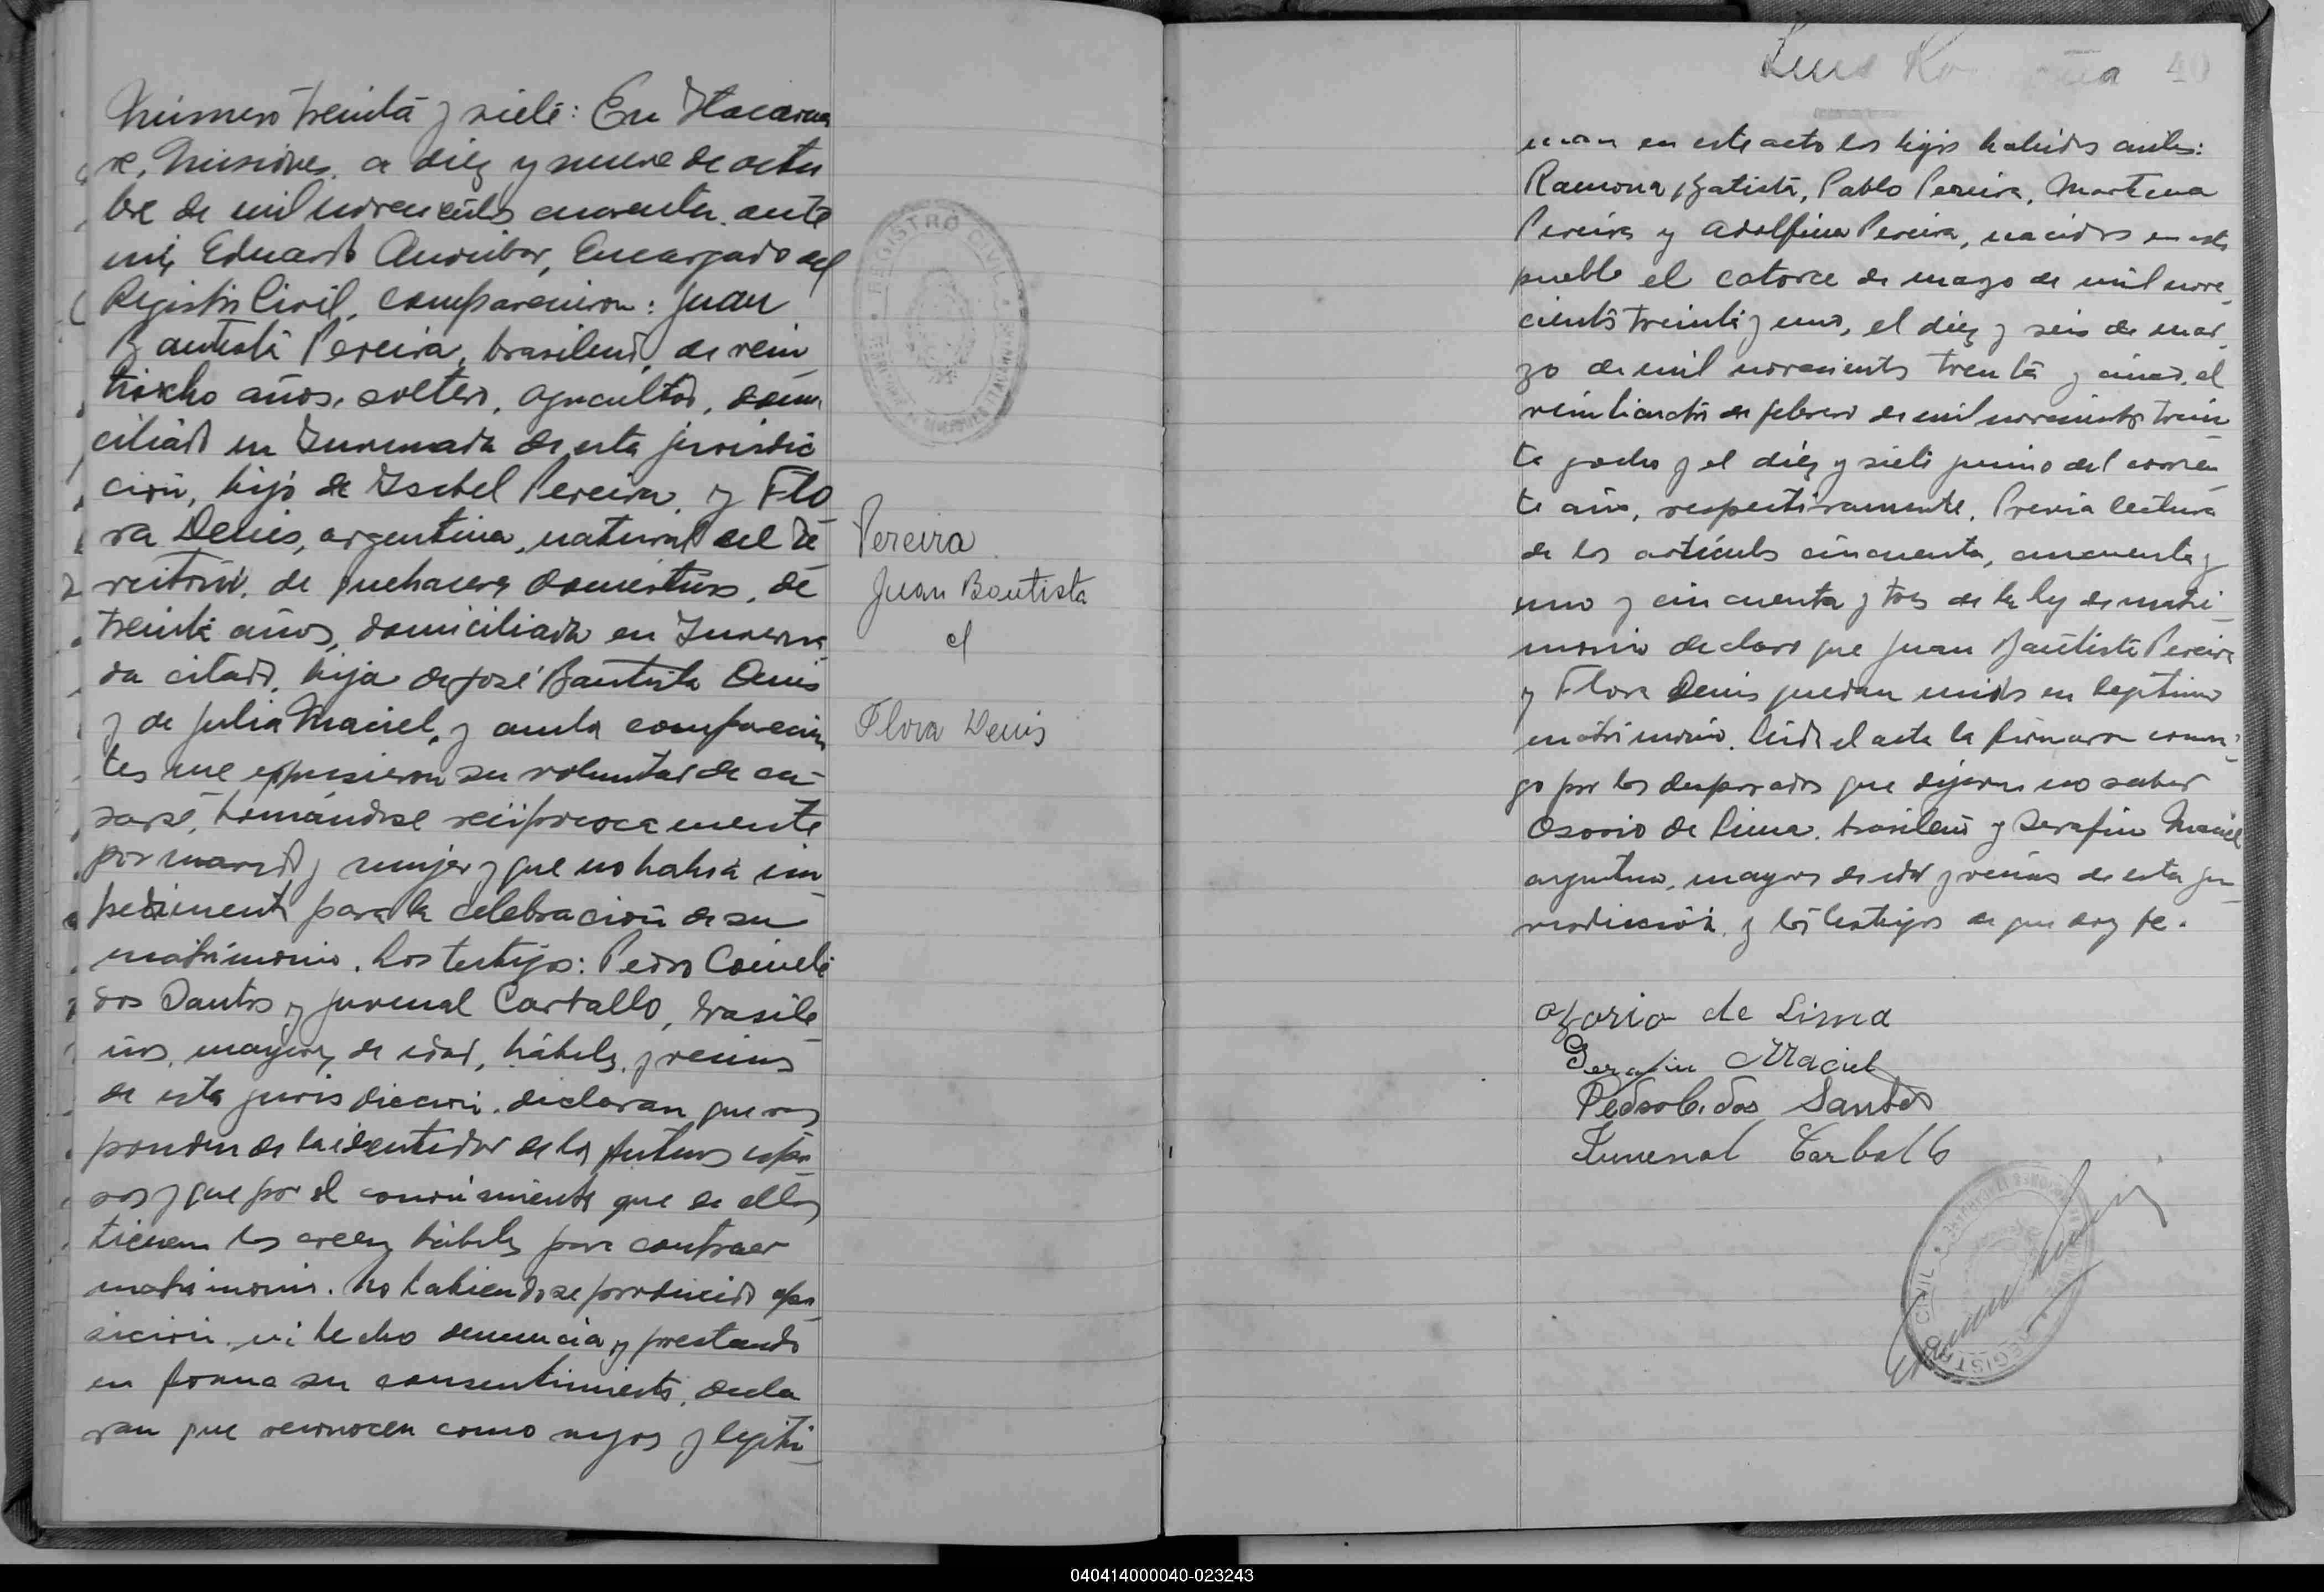 Número treinta y siete: En Itacarua
ré, Misiones, a diez y nueve de octu
bre de mil novecientos cuarenta, ante
mi, Eduardo , Encargado del
Registro Civil, comparecieron: Juan
Bautista Pereira, brasileño, de vein
tiocho años, soltero, agricultor, domi
ciliado en de esta jurisdic
ción, hijo de Isabel Pereira, y Flo
ra Denis, argentina, natural del te
rritorio, de quehaceres domésticos, de
treinta años, domiciliada en
da citado, hija de José Bautista Denis
y de Julia Maciel, y ambos comparecien
tes me expusieron su voluntad de ca-
sarse, tomándose recíprocamente
por marido y mujer y que no había im
pedimento para la celebración de su
matrimonio. Los testigos: Pedro
dos Santos y Juvenal Carballo, brasile
ños, mayores de edad, hábiles, y vecinos
de esta jurisdicción, declaran que res
ponden de la identidad de los futuros espo
sos y que por el conocimiento que de ellos
tienen los creen hábiles para contraer
matrimonio. No habiendose producido opo
sición, ni hecho denuncia y prestando
en forma su consentimiento, decla
ran que reconocen como suyos y legiti
Pereira
Juan Bautista
c/
Flora Denis
REGISTRO CIVIL
40
man en este acto los hijos habidos antes:
Ramona Batista, Pablo Pereira, Martina
Pereira y Adolfina Pereira, nacidos en este
pueblo el catorce de mayo de mil nove
cientos treinta y uno, el diez y seis de mar
zo de mil novecientos trenta y cinco, el
veinticuatro de febrero de mil novecientos trein
ta y ocho y el diez y siete junio del corrien
te año, respectivamente. Previa lectura
de los artículos cincuenta, cincuenta y
uno y cincuenta y tres de la ley de matri
monio declaro que Juan Bautista Pereira
y Flora Denis quedan unidos en legítimo
matrimonio. Leída el acta la firmaron conmi
go por los desposados que dijeron no saber
Osorio de Lima, brasileño y Serafin Maciel
argentino, mayores de edad y vecinos de esta ju
risdicción, y los testigos de que doy fe.
Ozorio de Lima
Serafin Maciel
Pedro C. dos Santos
Juvenal Carballo
REGISTRO CIVIL
040414000040-023243